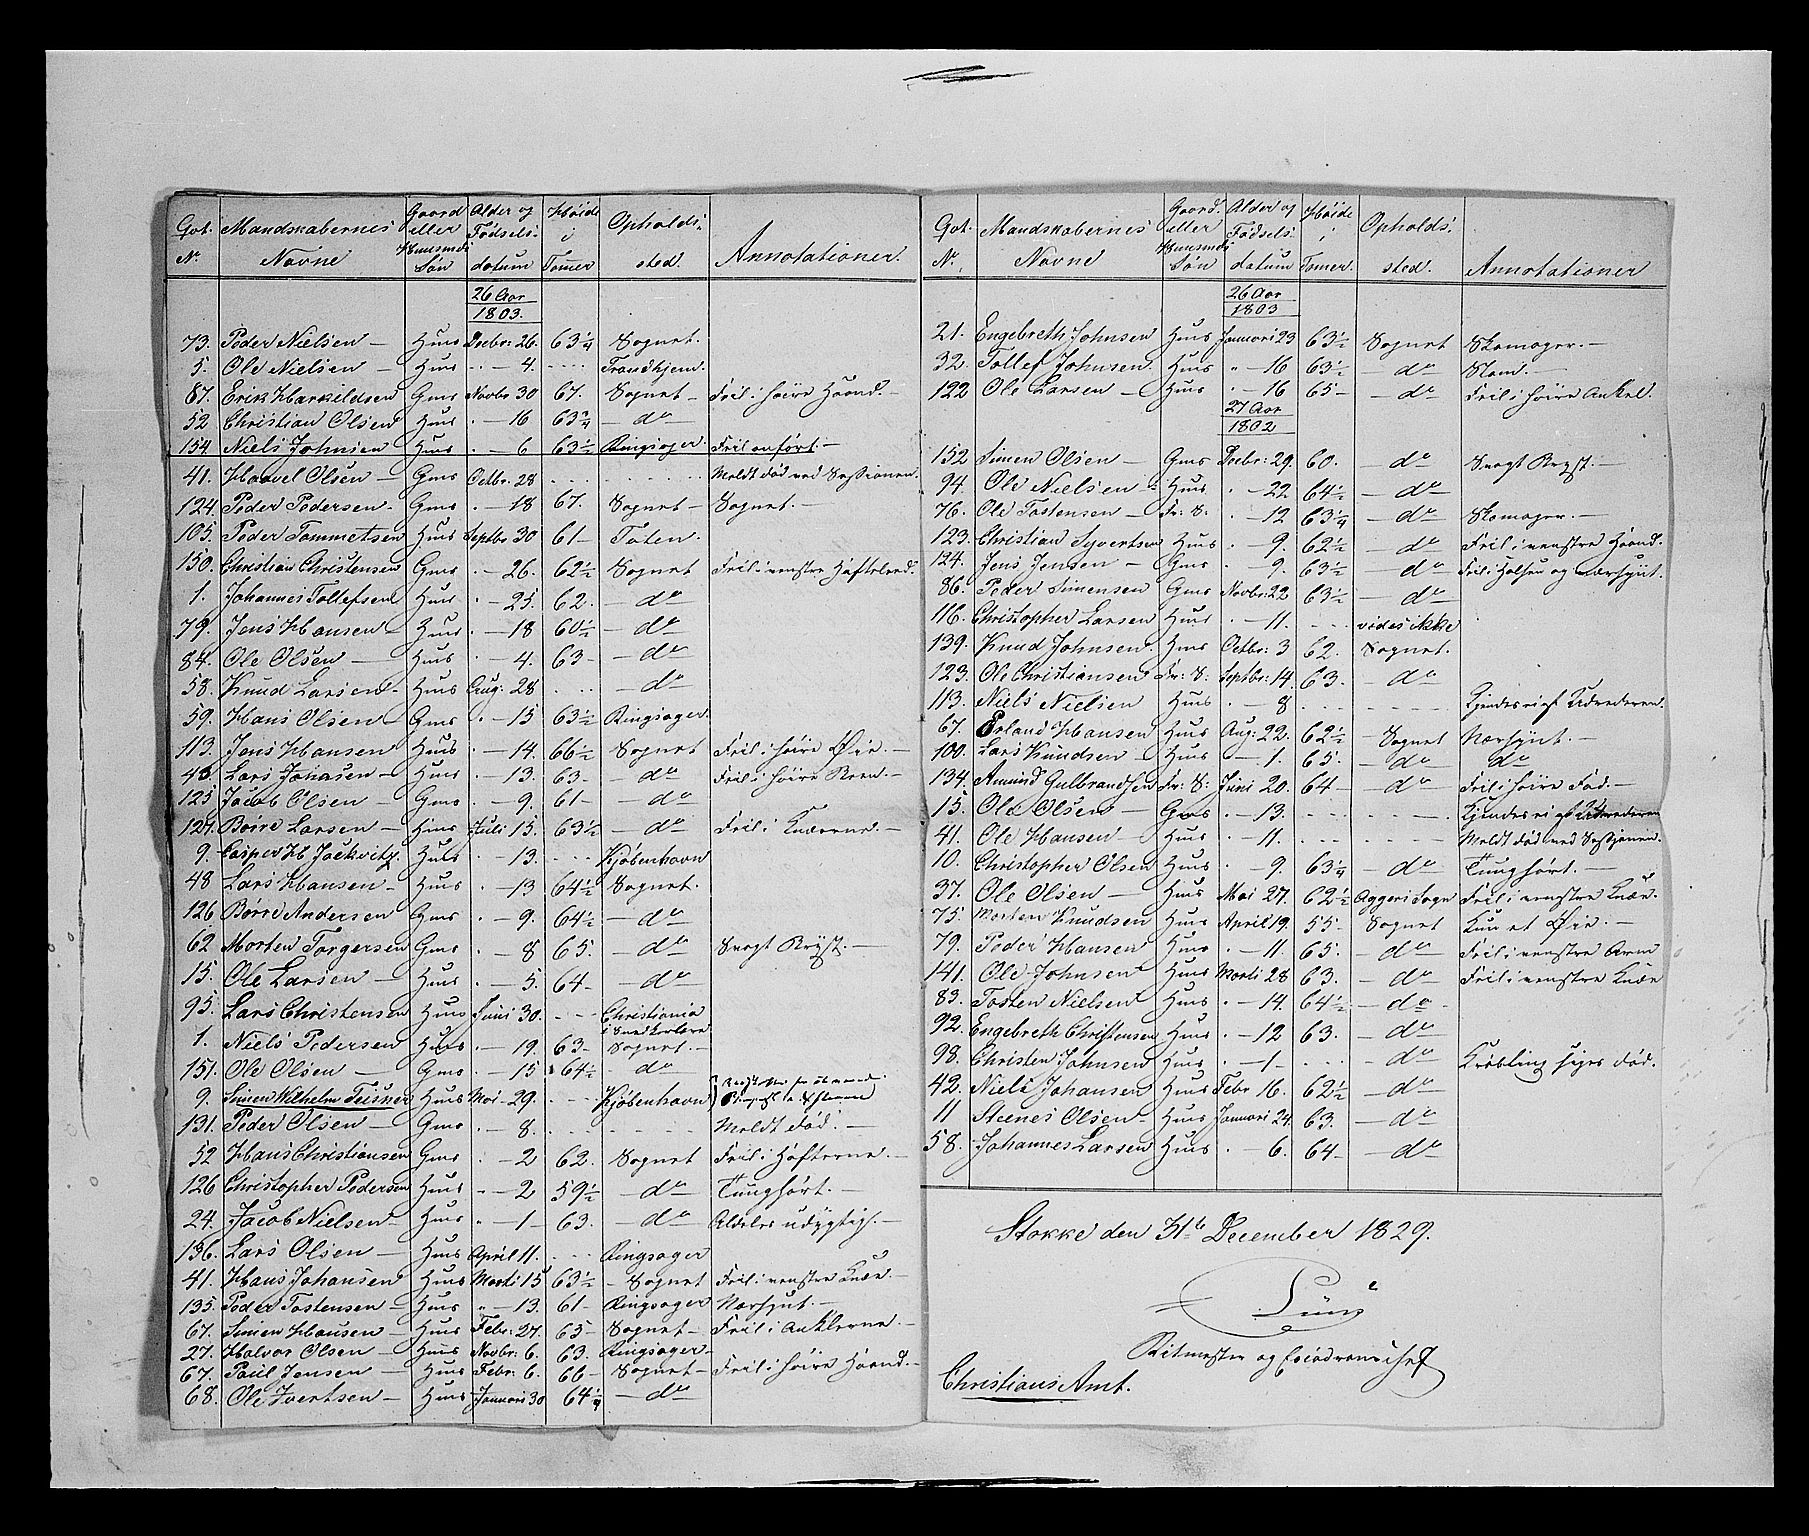 Got. Nr. Mandskabernes Navne Gaard eller Huusmds Søn Alder og Fødsels datum Høide i Tomer Opholds sted. Annotationer.
26 Aar
1803.
73. Peder Nielsen — Huus Decbr: 26. 63 1/4 Sognet.
5. Ole Nielsen — Huus " — 4. Trondhjem.
87. Erik Harkildsen Gms Novbr 30 67. Sognet — Feil i høire Haand. —
52 Christian Olsen Huus " — 16 63 3/4 — do
154. Niels Johnsen Huus " — 6 63 1/2 Ringsager. Feil anført. —
41. Haavel Olsen — Gms Octbr. 28 Meldt død ved Sessionen.
124. Peder Pedersen — Gms " — 18 67. Sognet — Sognet. —
105. Peder Tommetsen Huus Septbr 30 61 — Toten.
150. Christian Christensen Gms " — 26. 62 1/2 Sognet Feil i venstre Hofteled.
1. Johannes Tollefsen Huus " — 25. 62. — do
79. Jens Hansen — Huus " — 18 60 1/2 — do
84. Ole Olsen — Huus " — 4. 63 — — do
58. Knud Larsen — Huus Aug: 28 — do
59. Hans Olsen — Gms " — 15 63 1/2 Ringsager.
113. Jens Hansen — Huus " — 14. 66 1/2 Sognet Feil i høire Øie. —
40. Lars Johasen — Huus " — 13. 63 — — do Feil i høire Been. —
125 Jacob Olsen — Gms " — 9. 61 — — do
127. Børre Larsen — Huus Juli 15. 63 1/2 — do Feil i Knæerne. —
9. Casper H. Jackvitz. Huus " — 13. Kjøbenhavn
48 Lars Hansen — Huus " — 13 64 1/2 Sognet.
126 Børre Andersen Gms " — 9. 64 1/2 — do
62 Morten Torgersen Gms " — 8 65. — do Svagt Bryst. —
15. Ole Larsen — Huus " — 5. 64 — — do
95. Lars Christensen Huus Juni 30. Christiania
i Snedkerlære
1. Niels Pedersen Huus " — 19. 63 — Sognet. —
151. Ole Olsen — Gms " — 15 64 1/2 — do
9. Simen Wilhelm Teisner Huus Mai — 29. Kjøbenhavn
131. Peder Olsen — Gms " — 8. Meldt død. —
52 Hans Christiansen Gms " — 2 62. Sognet Feil i Hofterne. —
126 Christopher Pedersen Huus " — 2 59 1/2 — do Tunghørt. —
24. Jacob Nielsen — Huus " — 1 — 63. — do Aldeles udygtig. —
136. Lars Olsen — Huus April 11. Ringsager
41. Hans Johansen Huus Marti 15 63 1/2 — Sognet Feil i venstre Knæe. —
135. Peder Tostensen — Huus " — 13. 61 — Ringsager Nærsynt. —
67. Simen Hansen — Huus Febr: 27. 65 — Sognet — Feil i Anklerne. —
27. Halvor Olsen — Huus Novbr: 6. 63. Ringsager —
67. Paul Jensen — Huus Febr: 6. 66 — Sognet — Feil i høire Haand. —
68. Ole Ivertsen — Huus Januari 30 64 1/4 — do
Got. Nr. Mandskabernes Navne Gaard. eller Huusmds Søn Alder og Fødsels datum Høide i Tomer. Opholds sted. Annotationer
26 Aar
1803
21. Engebreth Johnsen Huus Januari 23 63 1/2 Sognet Skomager. —
32. Tollef Johnsen. Huus " — 16 63 1/2 do Stam. —
122 Ole Larsen — Huus " — 16 65 — — do Feil i høire Ankel.
27 Aar
1802
152 Simen Olsen — Gms Decbr: 29. 60. — do Svagt Bryst. —
94. Ole Nielsen — Huus " — 22 64 1/2 — do
76. Ole Tostensen — Fr: S: " — 12 63 1/4 — do Skomager. —
123. Christian Syvertsen Huus " — 9. 62 1/2 — do Feil i venstre Haand.
124. Jens Jensen — Gms " — 9. 63 1/2 — do Feil i Halsen og nærsynt.
86. Peder Simensen Gms Novbr: 22 63 1/2 — do
116. Christopher Larsen Huus " — 11. vides ikke
139. Knud Johnsen. Huus Octbr: 3 62. Sognet.
123. Ole Christiansen Fr: S: Septbr: 14. 63. — do
113. Niels Nielsen Huus " — 8 Kjendes ei af Udrederen.
67. Erland Hansen Huus Aug: 22. 62 1/2 — Sognet Nærsynt. —
100. Lars Knudsen — Huus " — 1. 65. — do do
134. Amund Gulbrandsen Fr: S: Juni 20. 64 — — do Feil i høire Fod. —
15. Ole Olsen — Gms " — 13. Kjendes ei af Udrederen
41. Ole Hansen — Huus " — 11. Meldt død ved Sessionen.
10. Christopher Olsen Huus " — 9. 63 1/4 — do Tunghørt. —
37. Ole Olsen — Huus Mai 27. 62 1/2 Aggeri Sogn Feil i venstre Knæe.
75. Morten Knudsen Huus April 19. 55 — Sognet Kun et Øie. —
79. Peder Hansen Huus " — 11. 65. — do Feil i venstre Arm
141. Ole Johnsen Huus Marti 28 63. — do Feil i venstre Knæe
83. Tosten Nielsen Huus " — 14. 64 1/2 — do
92. Engebreth Christensen Huus " — 12 63. — do
98. Christen Johnsen Huus " — 1 — — do Krøbling siges død.
42. Niels Johansen Huus Febr 16. 62 1/2 — do
11 Steenes Olsen — Huus Januari 24. 63. — do
58. Johannes Larsen Huus " — 6. 64 — — do
Stokke den 31te December 1829.
Ritmester og Escadronschef
Christians Amt.